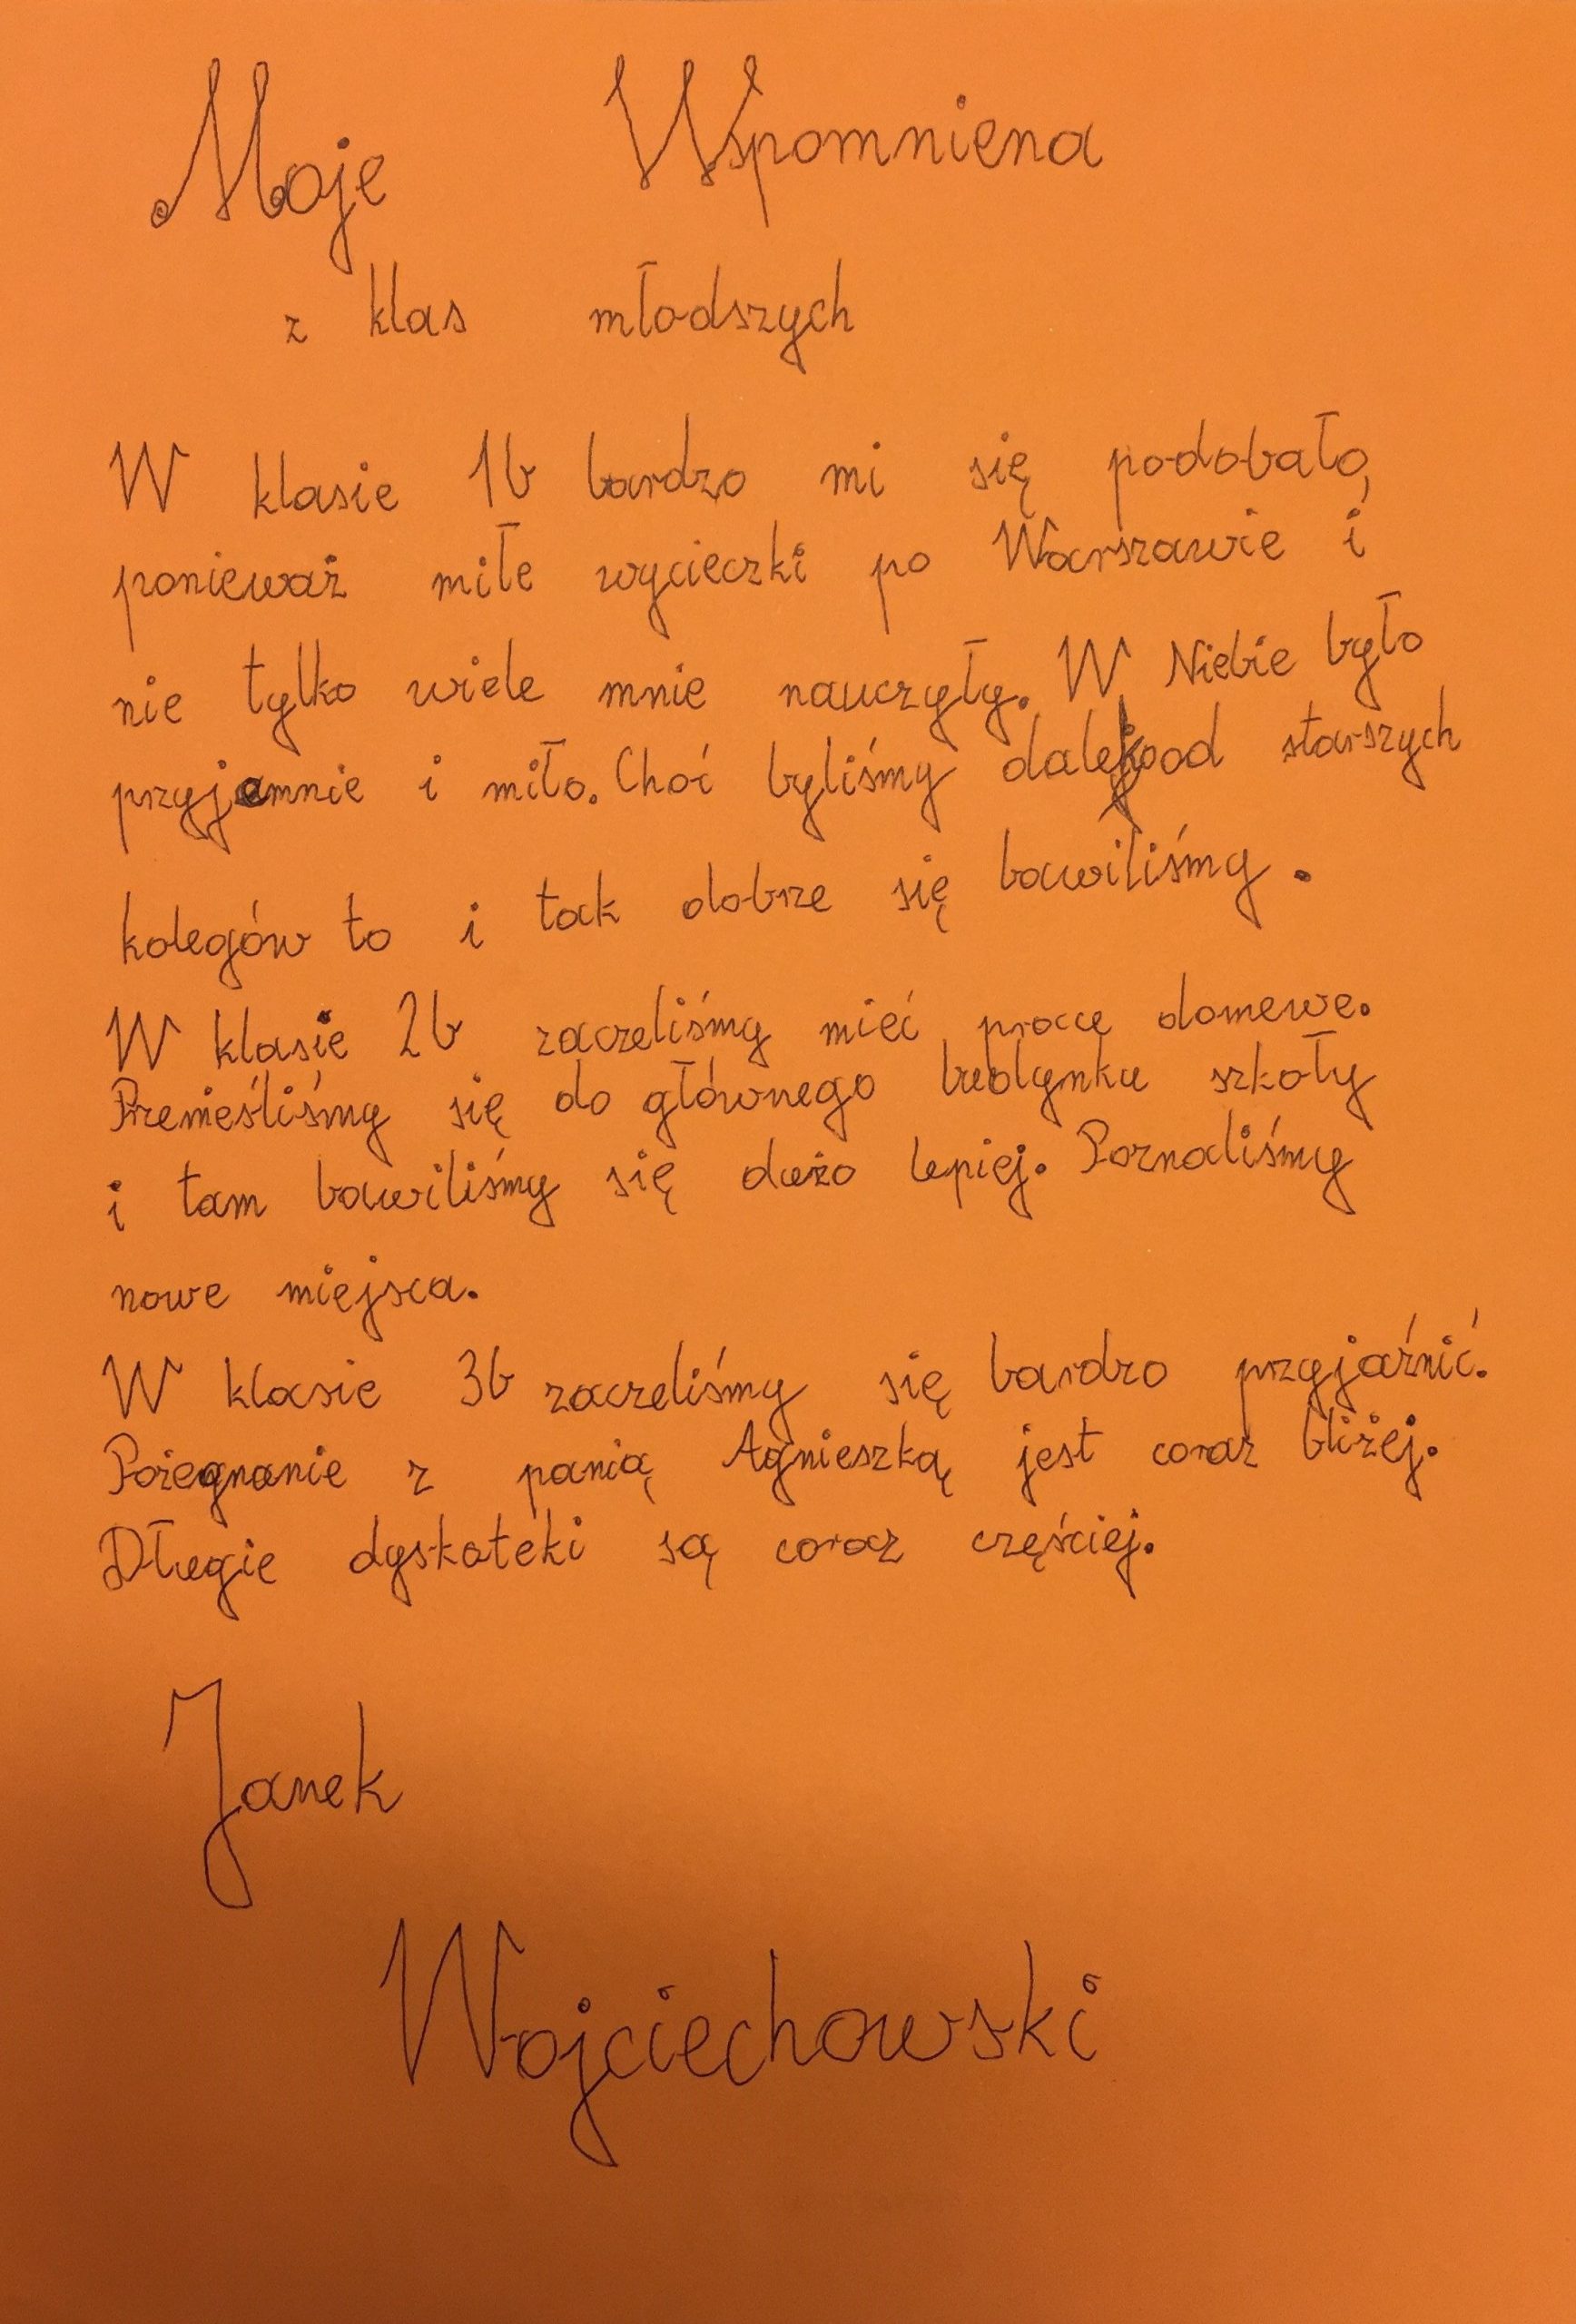 Moje Wspomniena
z klas młodszych
W klasie 1b bardzo mi się podobało,
ponieważ miłe wycieczki po Warszawie i
nie tylko wiele mnie nauczyły. W Niebie było
przyjemnie i miło. Choć byliśmy daleko od starszych
kolegów to i tak dobrze się bawiliśmy.
W klasie 2b zaczeliśmy mieć pracę domewe.
Przenieśliśmy się do głównego budynku szkoły
i tam bawiliśmy się dużo lepiej. Poznaliśmy
nowe miejsca.
W klasie 3b zaczeliśmy się bardzo przyjaźnić.
Pożegnanie z panią Agnieszką jest coraz bliżej.
Długie dyskoteki są coraz częściej.
Janek
Wojciechowski